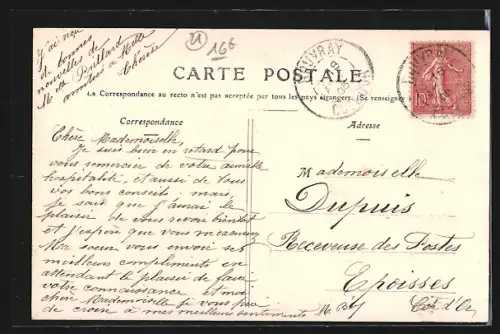 J'ai reçu
de bonnes
nouvelles de
Mr de
amitiés à Melle
21
16€
CARTE POSTALE
La Correspondance au recto n'est pas acceptée par tous les pays étrangers. (Se renseigner à
Correspondance
Adresse
Chère Mademoiselle
Je suis bien en retard pour
vous remercier de votre aimable
hospitalité, et aussi de tous
vos bons conseils; mais
je sais que j'aurai le
plaisir de vous revoir bientôt
et j'espère que vous m'excuserez
Ma soeur vous envoie ses
meilleurs compliments en
attendant le plaisir de faire
votre connaissance. Et moi
chère Mademoiselle je vous prie
de croire à mes meilleurs sentiments
Mademoiselle
Dupuis
Receveuse des Postes
Epoisses
Côte d'Or
10